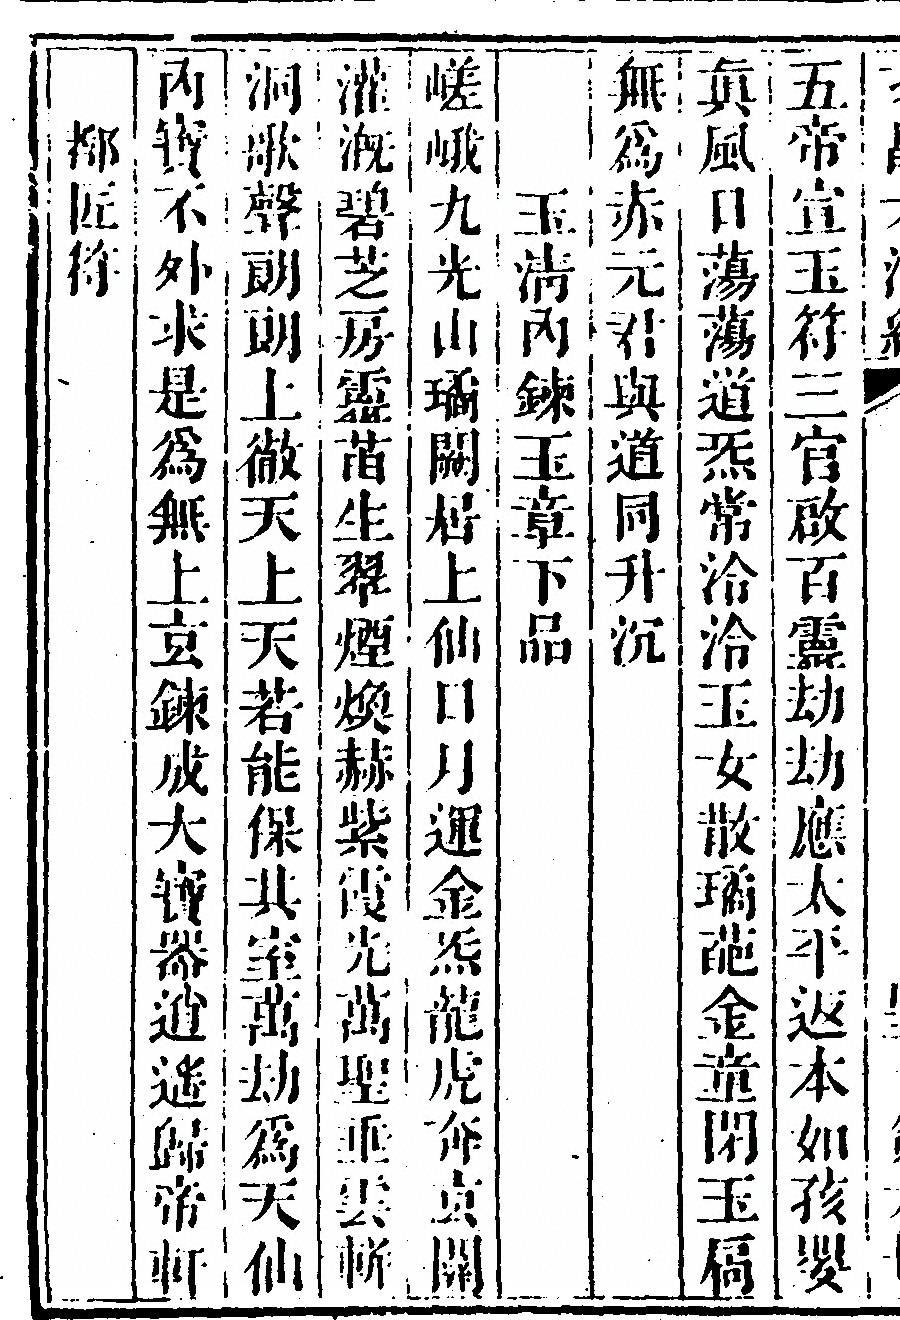 五帝宣玉符三官啟百靈劫劫應太平返本如孩嬰
真風日蕩蕩道炁常洽洽玉女散璚葩金童閉玉扃
無為赤元君與道同升沉
玉清內鍊玉章下品
嵯峨九光山璚闕居上仙日月運金炁龍虎奔京關
灌溉碧芝房靈苗生翠煙煥赫紫霞光萬聖乗雲軿
洞歌聲朗朗上徹天上天若能保其室萬劫為天仙
內寶不外求是為無上玄鍊成大寶器逍遙歸帝軒
鄒匠符